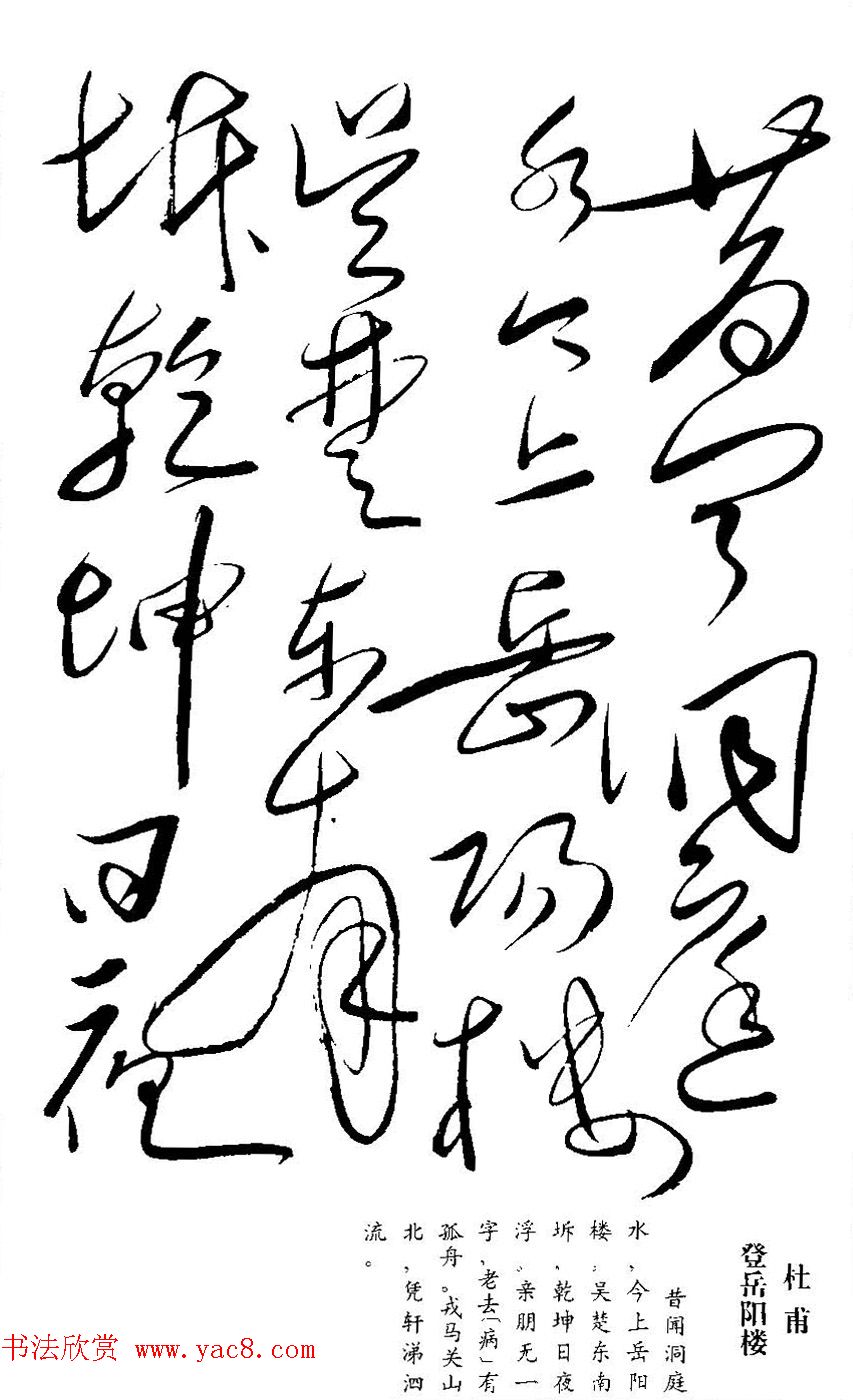 昔闻洞庭
水今上岳阳楼
吴楚东南
坼乾坤日夜
杜甫
登岳阳楼
昔闻洞庭
水,今上岳阳
楼;吴楚东南
坼,乾坤日夜
浮。亲朋无一
字,老去「病」有
孤舟。戎马关山
北,凭轩涕泗
流。
书法欣赏 www.yac8.com